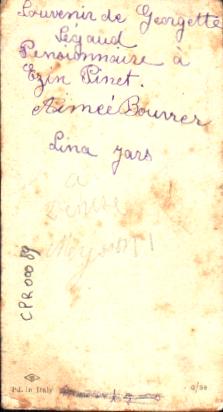 Souvenir de Georgette
Légaud
Pensionnaire à
Ezin Pinet.
Aimée Bouvrer
Lina Jars
a
Denise
CPR00089
Pd. in Italy